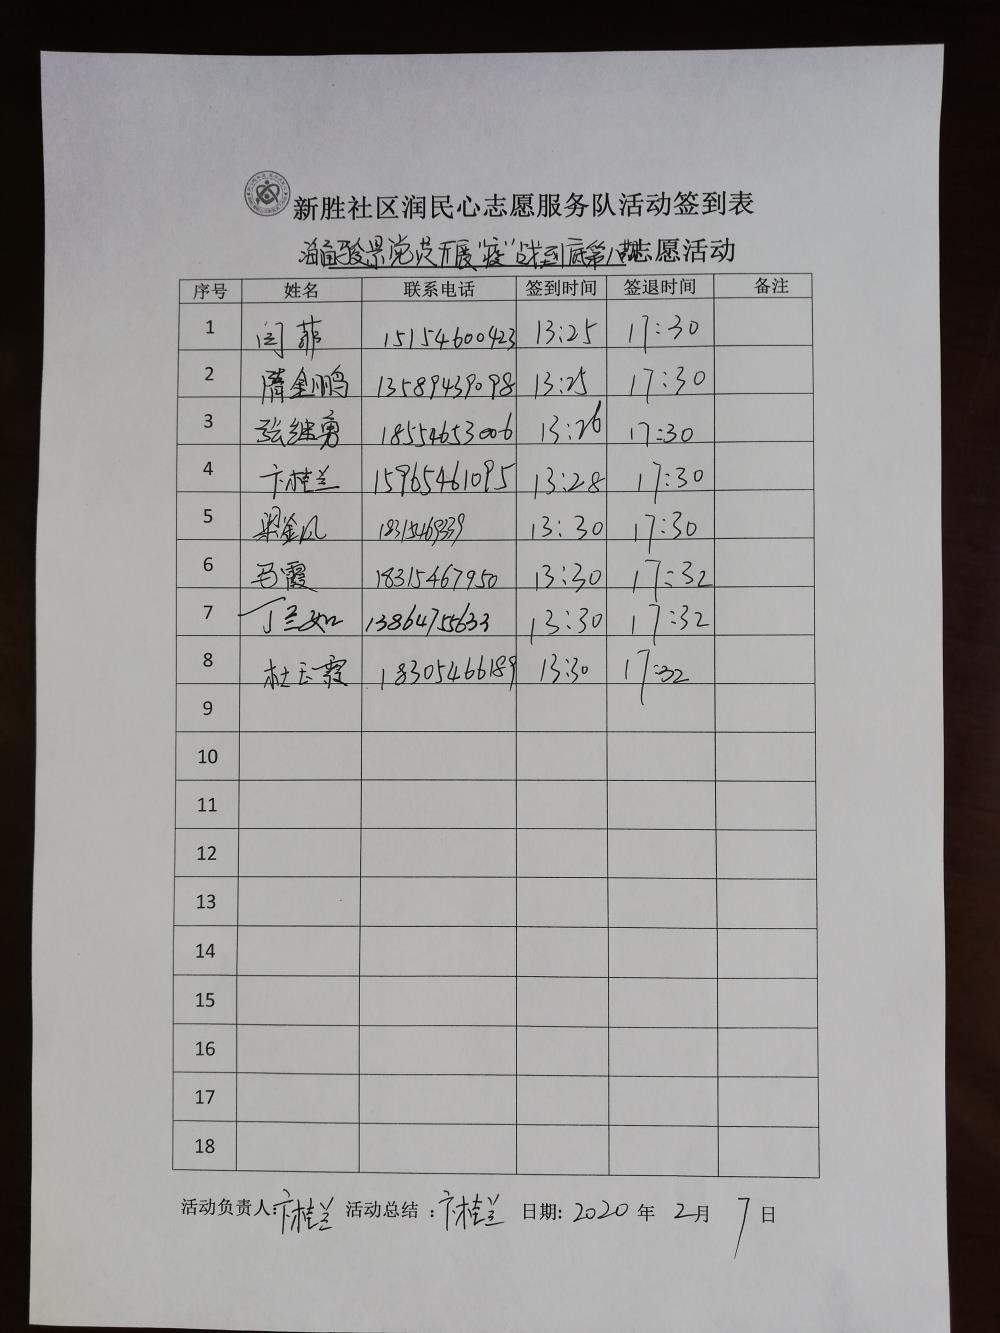 新胜社区润民心志愿服务队活动签到表
骏景党员开展"疫"战到底第八期志愿活动
序号 姓名 联系电话 签到时间 签退时间 备注
1 闫菲 15154600423 13:25 17:30
2 隋金鹏 13589439098 13:25 17:30
3 张继勇 18554653006 13:26 17:30
4 卞桂兰 15965461095 13:28 17:30
5 梁金凤 13:30 17:30
6 马霞 18315467950 13:30 17:32
7 丁兰如 13864755633 13:30 17:32
8 杜玉霞 18305466189 13:30 17:32
9
10
11
12
13
14
15
16
17
18
活动负责人:卞桂兰 活动总结:卞桂兰 日期:2020年2月7日